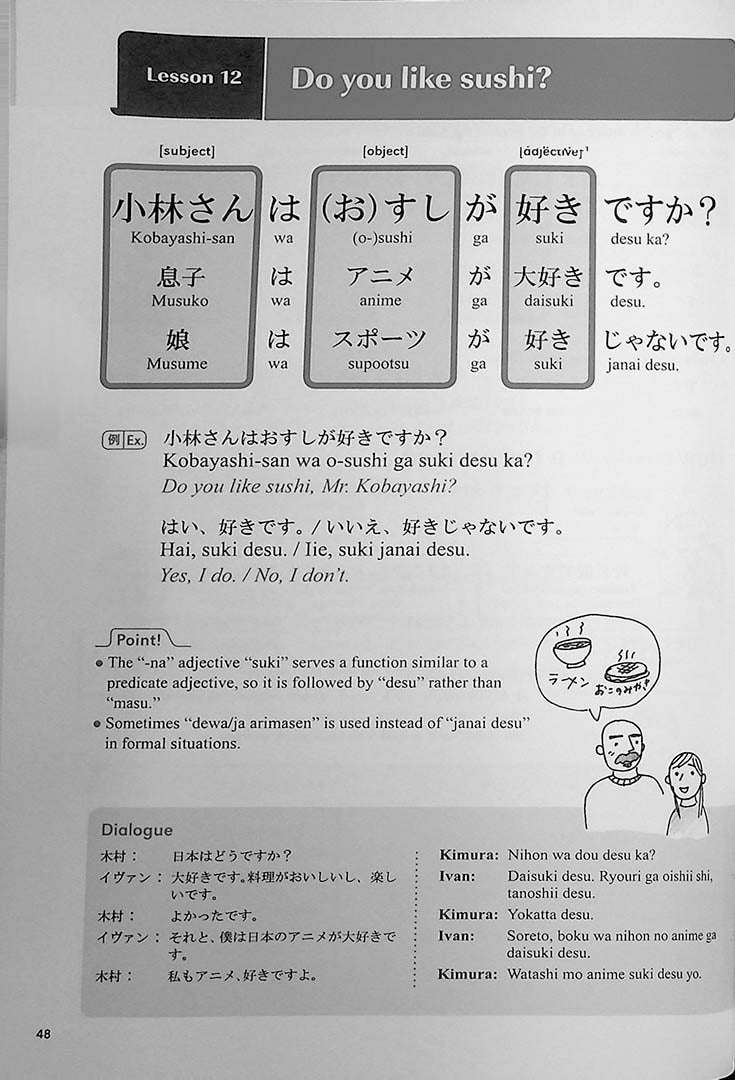 Lesson 12 Do you like sushi?
[subject] [object] [adjective]¹
小林さん は (お)すし が 好き ですか？
Kobayashi-san wa (o-)sushi ga suki desu ka?
息子 は アニメ が 大好き です。
Musuko wa anime ga daisuki desu.
娘 は スポーツ が 好き じゃないです。
Musume wa supootsu ga suki janai desu.
例 Ex. 小林さんはおすしが好きですか？
Kobayashi-san wa o-sushi ga suki desu ka?
Do you like sushi, Mr. Kobayashi?
はい、好きです。/ いいえ、好きじゃないです。
Hai, suki desu. / Iie, suki janai desu.
Yes, I do. / No, I don't.
Point!
• The “-na” adjective “suki” serves a function similar to a
predicate adjective, so it is followed by “desu” rather than
“masu.”
• Sometimes “dewa/ja arimasen” is used instead of “janai desu”
in formal situations.
ラーメン
おこのみやき
Dialogue
木村： 日本はどうですか？
イヴァン： 大好きです。料理がおいしいし、楽し
いです。
木村： よかったです。
イヴァン： それと、僕は日本のアニメが大好きで
す。
木村： 私もアニメ、好きですよ。
Kimura: Nihon wa dou desu ka?
Ivan: Daisuki desu. Ryouri ga oishii shi,
tanoshii desu.
Kimura: Yokatta desu.
Ivan: Soreto, boku wa nihon no anime ga
daisuki desu.
Kimura: Watashi mo anime suki desu yo.
48